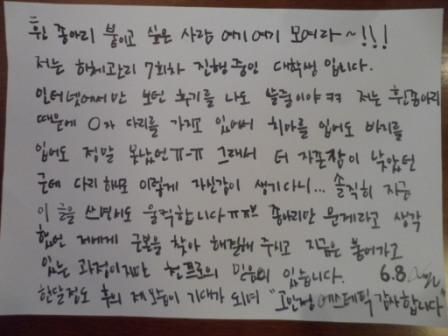 휜 종아리 붙이고 싶은 사람 여기 여기 모여라~!!!
저는 하체관리 7회차 진행중인 대학생 입니다.
인터넷에서만 보던 후기를 나도 쓸줄이야ㅋㅋ 저는 휜종아리
때문에 O자 다리를 가지고 있어서 치마를 입어도 바지를
입어도 정말 못났었ㅠ-ㅠ 그래서 더 자존감이 낮았던
근데 다리 해보 이렇게 자신감이 생기다니... 솔직히 지금
이 글을 쓰면서도 울컥합니다ㅠㅠ 종아리만 문제라고 생각
했던 저에게 근본을 찾아 해결해 주시고 지금은 붙어가고
있는 과정이지만 한프로의 믿음이 있습니다. 6.8
한달정도 후의 제모습이 기대가 되며 "고안정에스테틱 감사합니다"